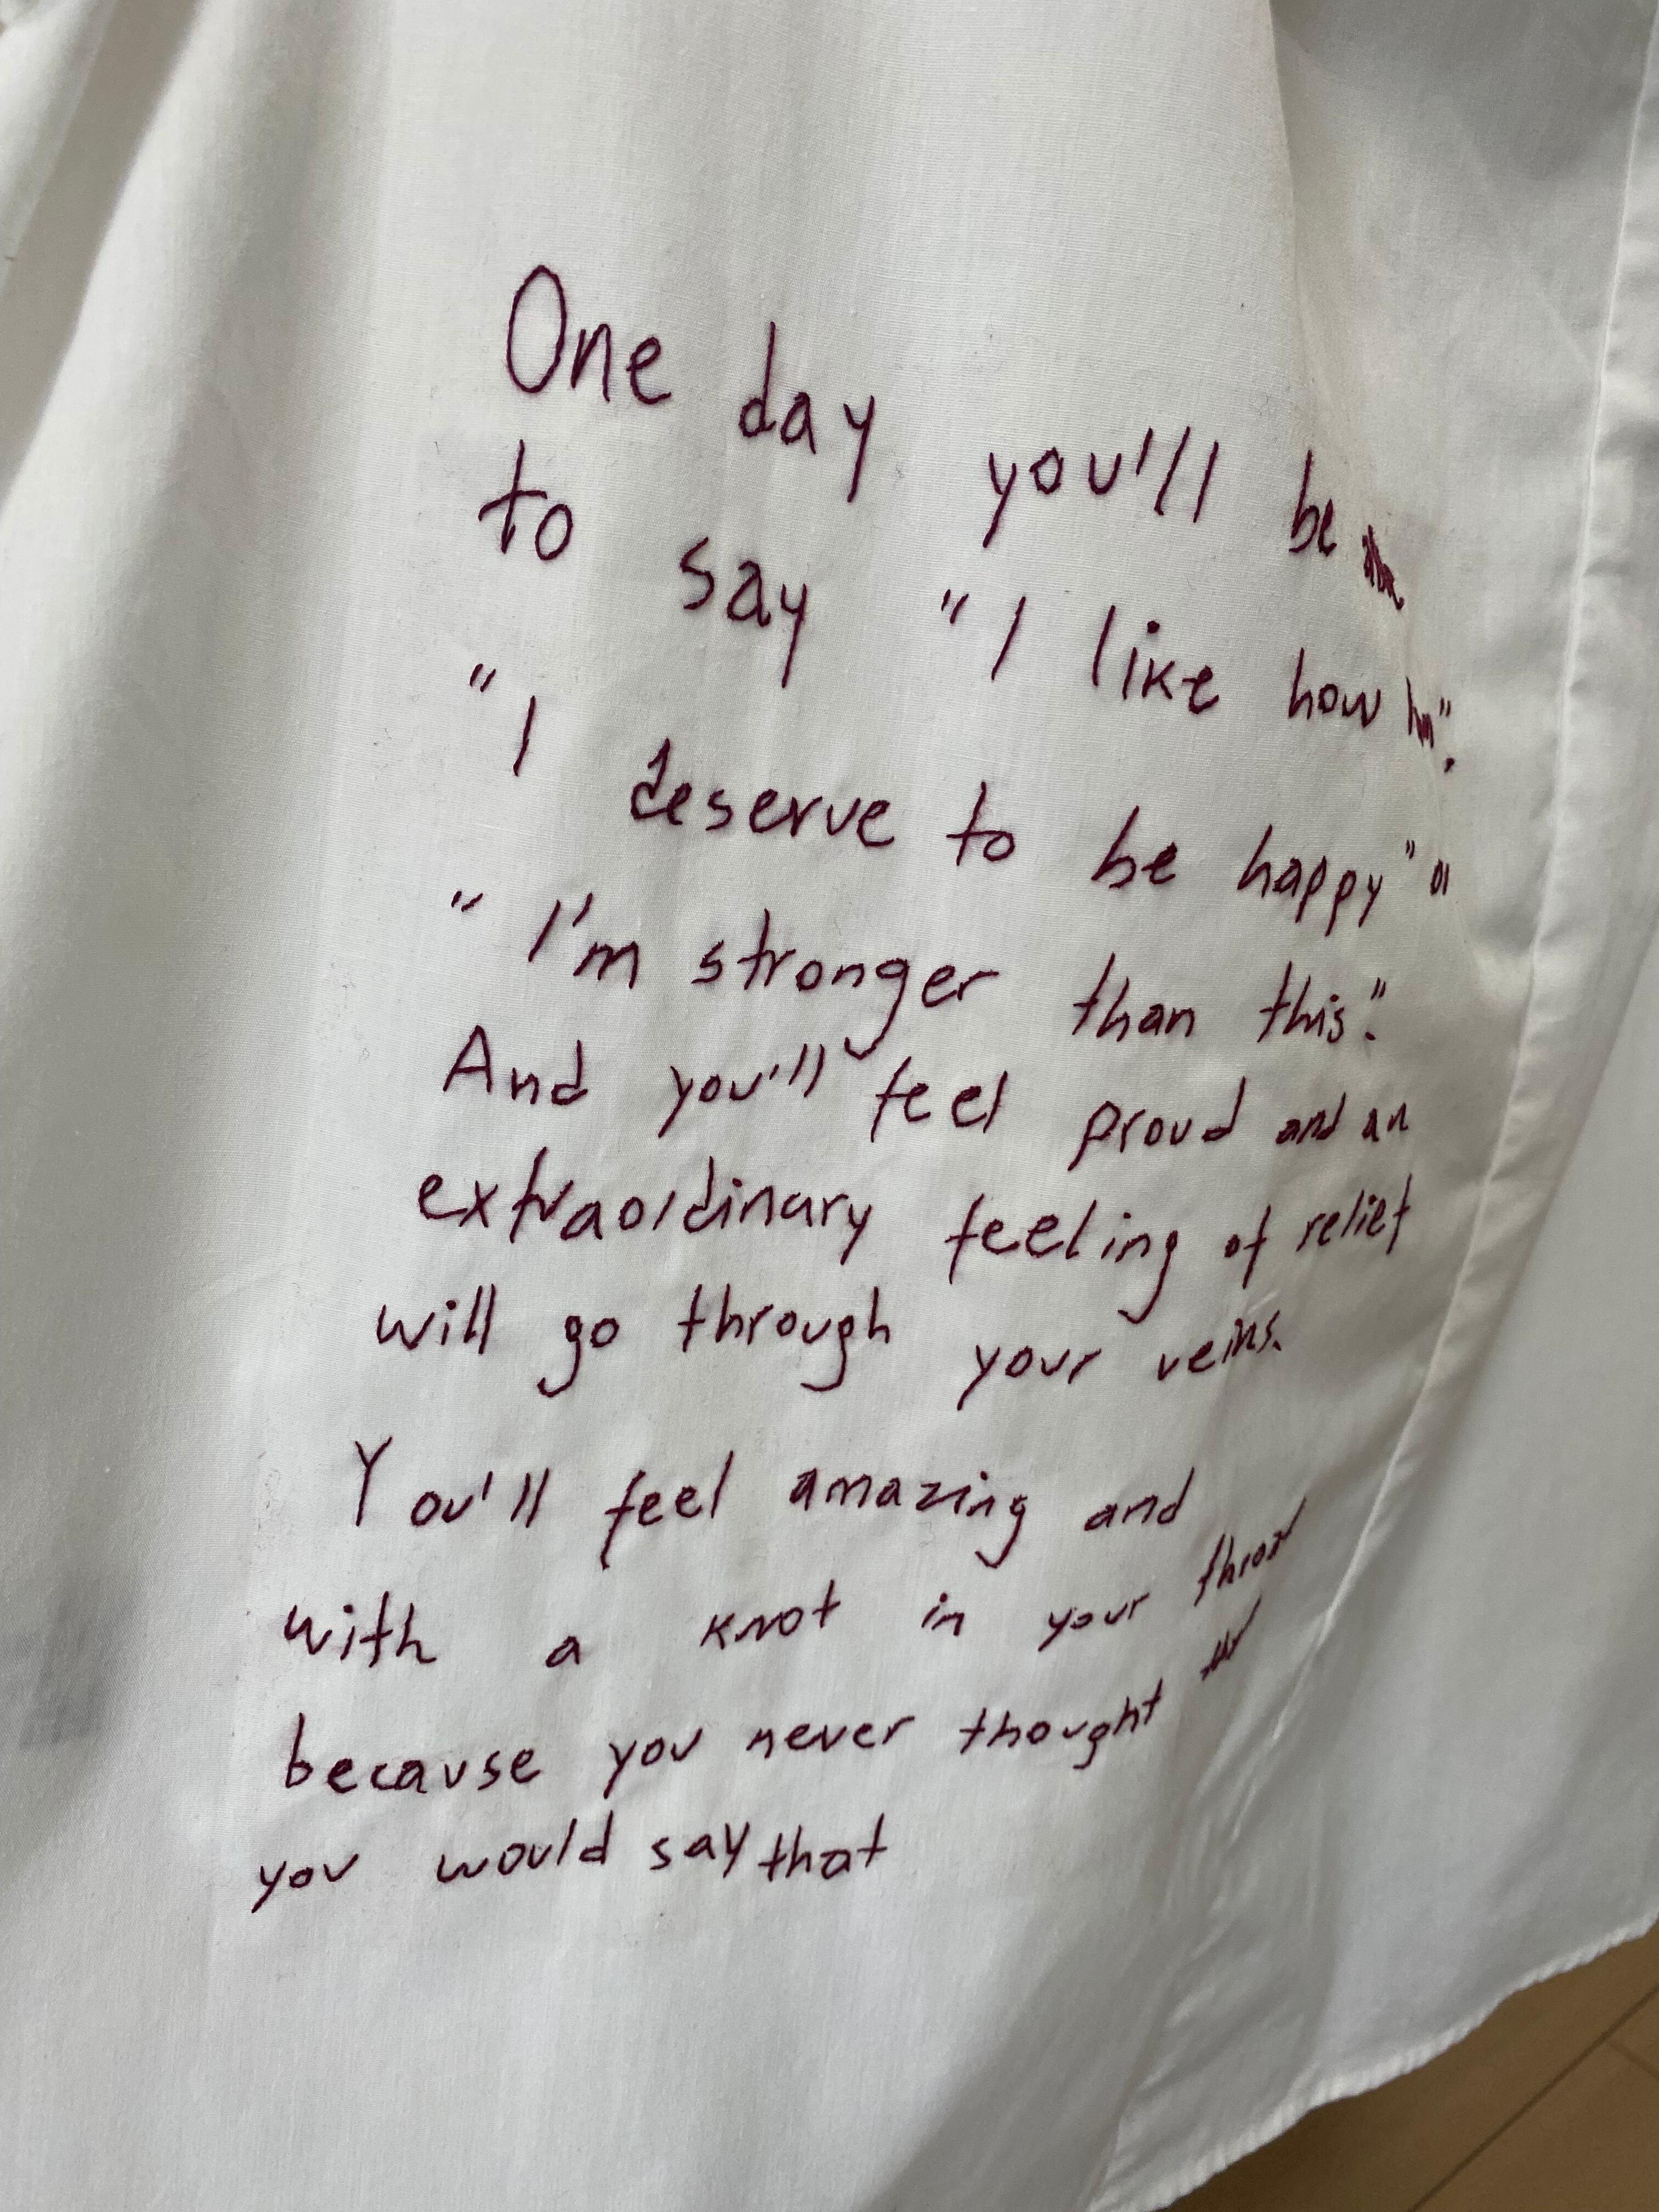 One day you'll be
to say "I like how
"I deserve to be happy"
"I'm stronger than this".
And you'll feel proud and an
extraordinary feeling of relief
will go through your veins.
You'll feel amazing and
with a knot in your throat
because you never thought
you would say that